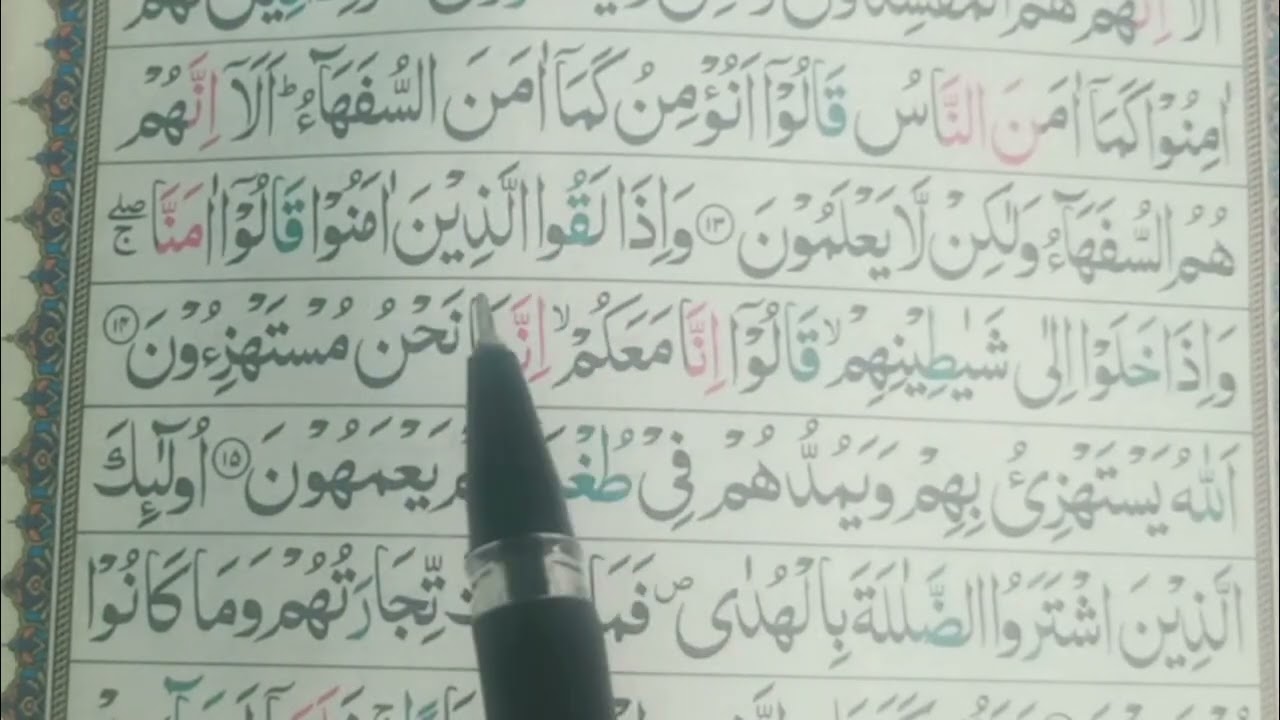 اٰمِنُوۡا كَمَاۤ اٰمَنَ النَّاسُ قَالُوۡۤا اَنُؤۡمِنُ كَمَاۤ اٰمَنَ السُّفَهَآءُ ؕ اَلَاۤ اِنَّهُمۡ
هُمُ السُّفَهَآءُ وَلٰكِنۡ لَّا يَعۡلَمُوۡنَ ﴿۱۳﴾ وَاِذَا لَقُوا الَّذِيۡنَ اٰمَنُوۡا قَالُوۡۤا اٰمَنَّا ۖۚ
وَاِذَا خَلَوۡا اِلٰى شَيٰطِيۡنِهِمۡ ۙ قَالُوۡۤا اِنَّا مَعَكُمۡ ۙ نَحۡنُ مُسۡتَهۡزِءُوۡنَ ﴿۱۴﴾
اَللّٰهُ يَسۡتَهۡزِئُ بِهِمۡ وَيَمُدُّهُمۡ فِىۡ يَعۡمَهُوۡنَ ﴿۱۵﴾ اُولٰٓئِكَ
الَّذِيۡنَ اشۡتَرَوُا الضَّلٰلَةَ بِالۡهُدٰى ۪ تِّجَارَتُهُمۡ وَمَا كَانُوۡا